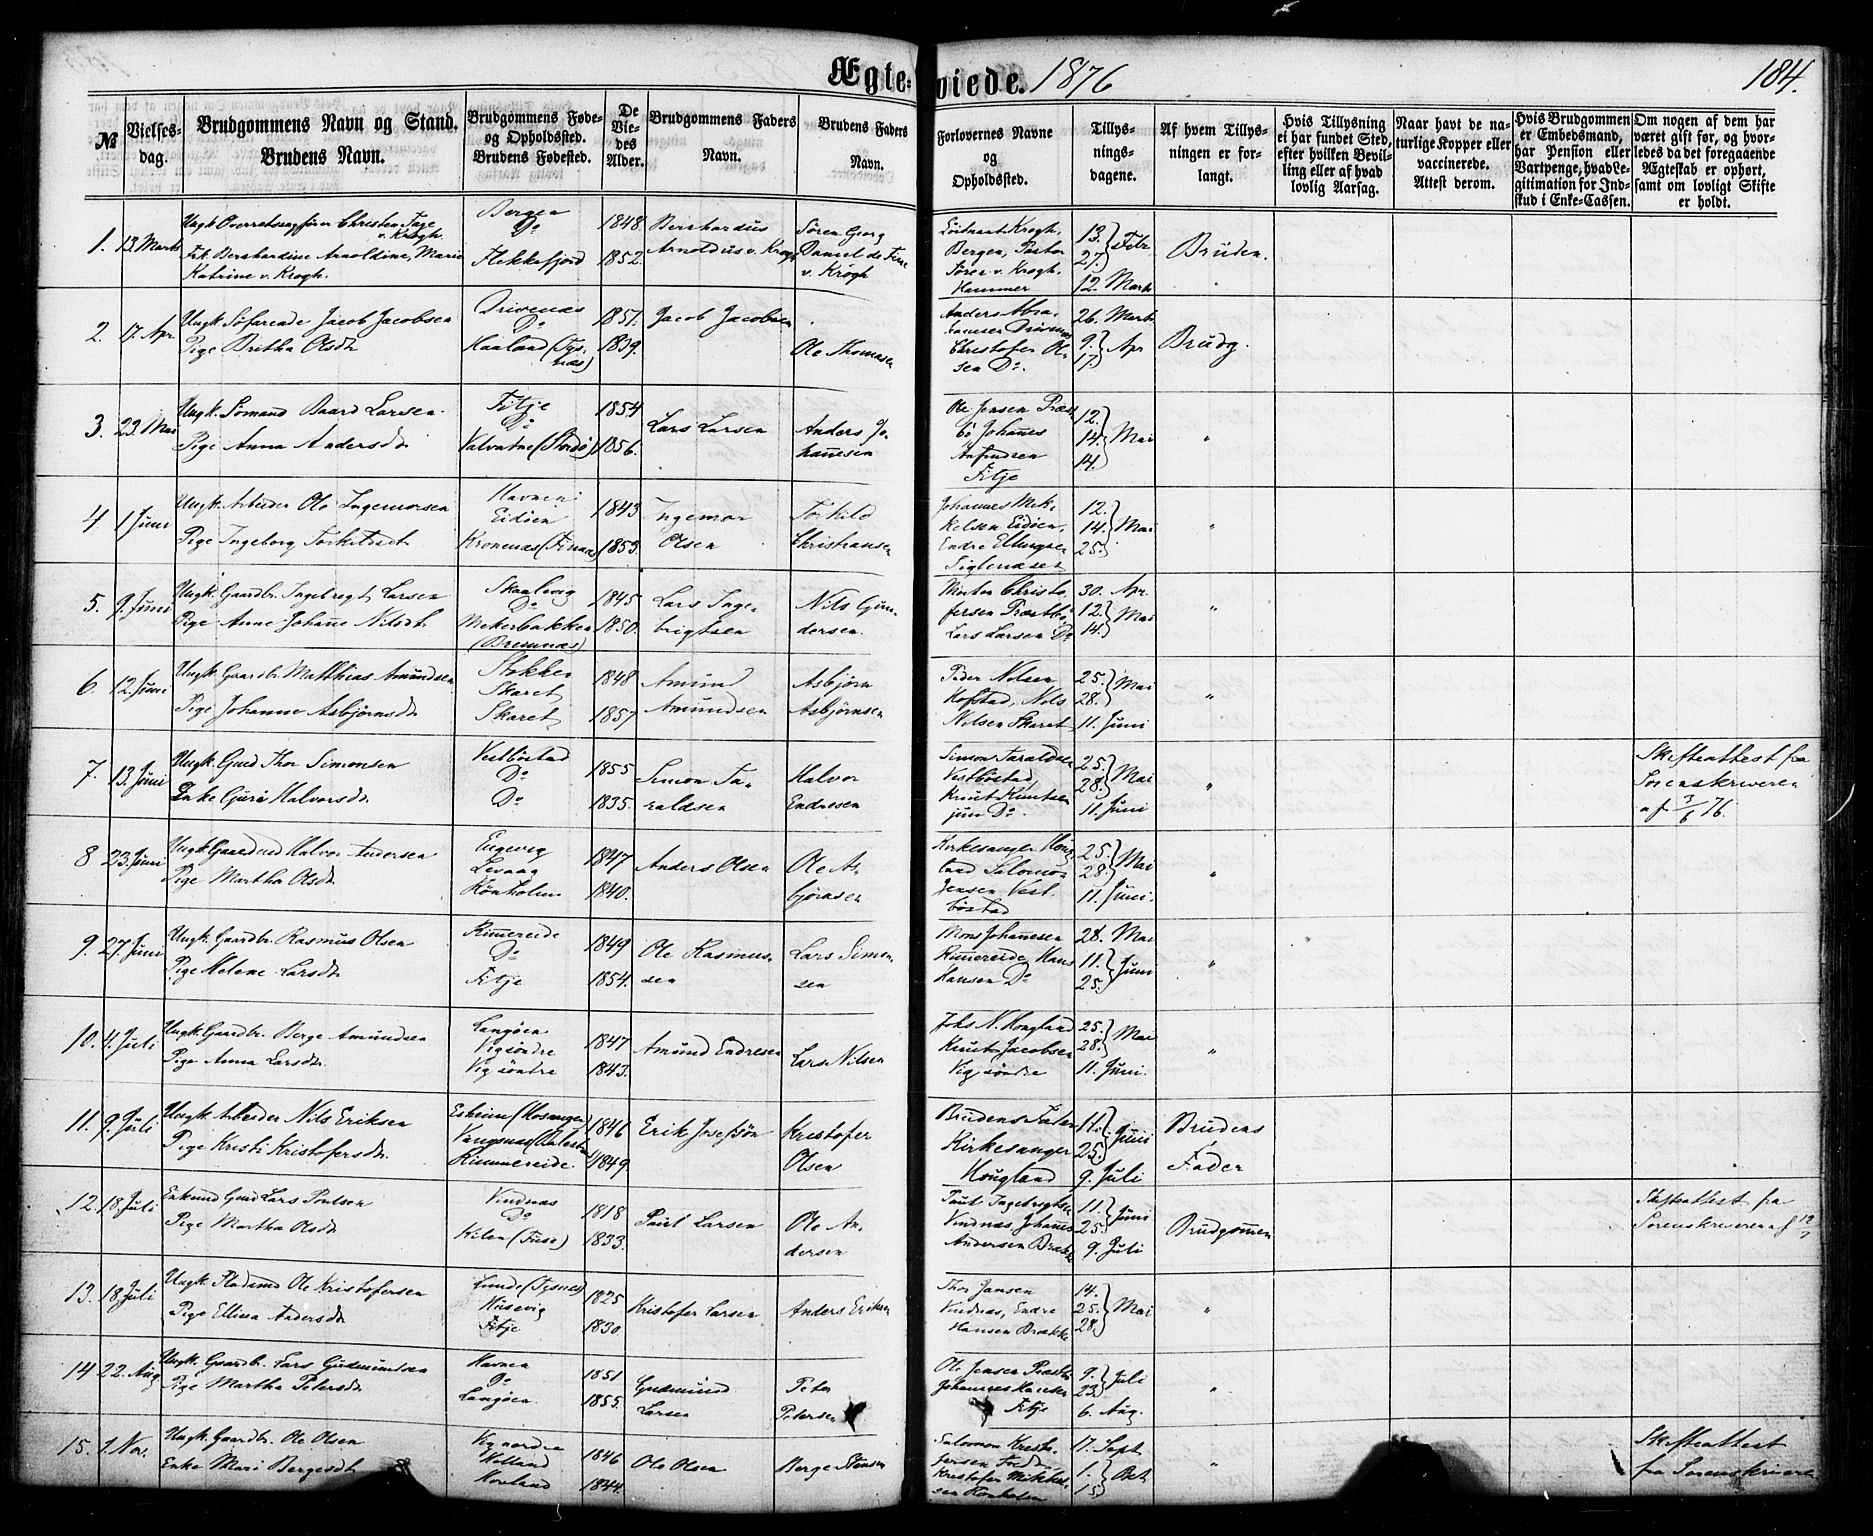 Ægte-viede. 1876
184.
№
Vielses-dag.
Brudgommens Navn og Stand.
Brudens Navn.
Brudgommens Føde- og Opholdssted.
Brudens Fødested.
De Viedes Alder.
Brudgommens Faders Navn.
Brudens Faders Navn.
Forlovernes Navne og Opholdssted.
Tillysningsdagene.
Af hvem Tillysningen er forlangt.
Hvis Tillysning ei har fundet Sted, efter hvilken Bevilling eller af hvad lovlig Aarsag.
Naar havt de naturlige Kopper eller vaccinerede. Attest derom.
Hvis Brudgommen er Embedsmand, har Pension eller Vartpenge, hvad Legitimation for Indskud i Enke-Cassen.
Om nogen af dem har været gift før, og hvorledes da det foregaaende Ægteskab er ophørt, samt om lovligt Skifte er holdt.
1. 13 Marts
Ungk. Overretssagfører Christen Fage v. Krogh
Frk. Bernhardine Arnoldine Marie Katrine v. Krogh.
Bergen
Do
Flekkefjord
1848.
1852.
Bernhardus Arnoldus v. Krogh
Søren Georg Daniel de Fine v. Krogh
Løitnant Krogh, Bergen, Pastor Søren v. Krogh, Hammer
13. 27. Febr
12. Marts
Bruden.
2. 17. Apr
Ungk. Søfarende Jacob Jacobsen
Pige Britha Olsdtr
Drivenæs
Do
Haaland (Tysnæs)
1851.
1839.
Jacob Jacobsen
Ole Thomasen
Anders Abrahamsen Drivenes
Christofer Olsen Do.
26. Marts
9. 17. Apr
Brudg.
3. 23. Mai
Ungk. Sømand Baard Larsen
Pige Anna Andersdtr
Fitje
Do
Valvatne (Stordø)
1854
1856.
Lars Larsen
Anders Johannesen
Ole Jensen Præstbø Johanes Anfindsen Fitje
12. 14. 14. Mai
"
4 1 Juni
Ungk. Arbeider Ole Ingemorsen
Pige Ingeborg Torkilsdtr
Havnen
Eidøen
Kronenæs (Finaas)
1843
1853.
Ingemor Olsen
Torkild Christiansen
Johannes Mikkelsen Eidøen, Endre Ellingsen Siglenæset
12. 14. 25. Mai
"
5. 9. Juni
Ungk. Gaardbr. Ingebregt Larsen
Pige Anne Johanne Nilsdt.
Skaalevig
Do
Mekerbakken (Bremnæs)
1845
1850.
Lars Ingebrigtsen
Nils Gundersen
Morten Christofersen Præstbø
Lars Larsen Do
30. Apr.
12. 14. Mai
"
6. 12. Juni
Ungk. Gaardbr. Matthias Amundsen
Pige Johanne Asbjørnsdtr
Stokken
Skaret
Skaret
1848
1857
Amund Amundsen
Asbjørn Asbjørnsen
Peder Nilsen Hofstad, Nils Nilsen Skaret
25. 28. Mai
11. Juni
"
7. 13. Juni
Ungk. Gmd Thor Simonsen
Enke Guri Halvorsdtr
Vestbøstad
Do
Do
1855
1835.
Simon Taraldsen
Halvor Endresen
Simon Taraldsen Vestbøstad, Knut Knutsen jun Do.
25. 28. Mai
11. Juni
"
Skifteattest fra Sorenskriveren af 3/6 76.
8 23. Juni
Ungk. Gaardmd Halvor Andersen
Pige Martha Olsdtr
Engevig
Levaag
Rønholm
1847
1840.
Anders Olsen
Ole Asbjørnsen
Kirkesanger Hougland Salomon Jensen Vestbøstad
25. 28. Mai
11. Juni.
"
9. 27. Juni
Ungk. Gaardbr. Rasmus Olsen
Pige Helene Larsdtr
Rimereide
Do
Fitje
1849
1854.
Ole Rasmussen
Lars Simonsen
Mons Johannesen Rimereide, Hans Hansen Do
28. Mai
11. 25. Juni
"
10. 4. Juli
Ungk. Gaardbr. Berge Amundsen
Pige Anna Larsdtr
Langøen
Vigsøndre
Vigsøndre
1847
1843.
Amund Endresen
Lars Nilsen
Johs N. Hougland
Knut Jacobsen Vigsøndre
25. 28. Mai
11. Juni.
"
11. 9. Juli
Ungk. Arbeider Nils Eriksen
Pige Kristi Kristofersdtr
Esheim (Hosanger)
Vangsnæs (Balestrand)
Rimmereide
1846
1849
Erik Josefsøn
Kristofer Olsen
Brudens Fader
Kirkesanger Hougland
11. 25. Juni
9. Juli
Brudens Fader
12. 18. Juli
Enkmd Gmd Lars Poulsen
Pige Martha Olsdtr
Vindnæs
Do
Kilen (Fuse)
1818
1833.
Poul Larsen
Ole Andersen
Poul Ingebrigtsen Vindnæs, Johanes Andersen Brække
11. 25. Juni
9. Juli
Brudgommen
Skifteattest fra Sorenskriveren af 12/7
13. 18 Juli
Ungk. Pladsmd Ole Kristofersen
Pige Ellina Andersdtr
Lunde (Tysnes)
Husevig
Fitje
1825
1830
Kristofer Larsen
Anders Eriksen
Thor Jansen Vindnæs, Endre Hansen Brække
14. 25. 28. Mai
"
14 22. Aug
Ungk. Gaardbr. Lars Gudmundsen
Pige Martha Petersdtr
Havnen
Do
Langøen
1851
1855.
Gudmund Larsen
Peter Petersen
Ole Jensen Præstbø
Johannes Hansen Fitje
9. 23. Juli
6. Aug.
"
15. 1. Nov.
Ungk. Gaardbr. Ole Olsen
Enke Mari Bergesdt
Vignordre
Holland
Hovland
1846
1844.
Ole Olsen
Berge Steensen
Salomon Kristofersen
Kristofer Mikkelsen Rønholm
17. Sept
1. 15. Oct
"
Skifteattest fra Sorenskriveren